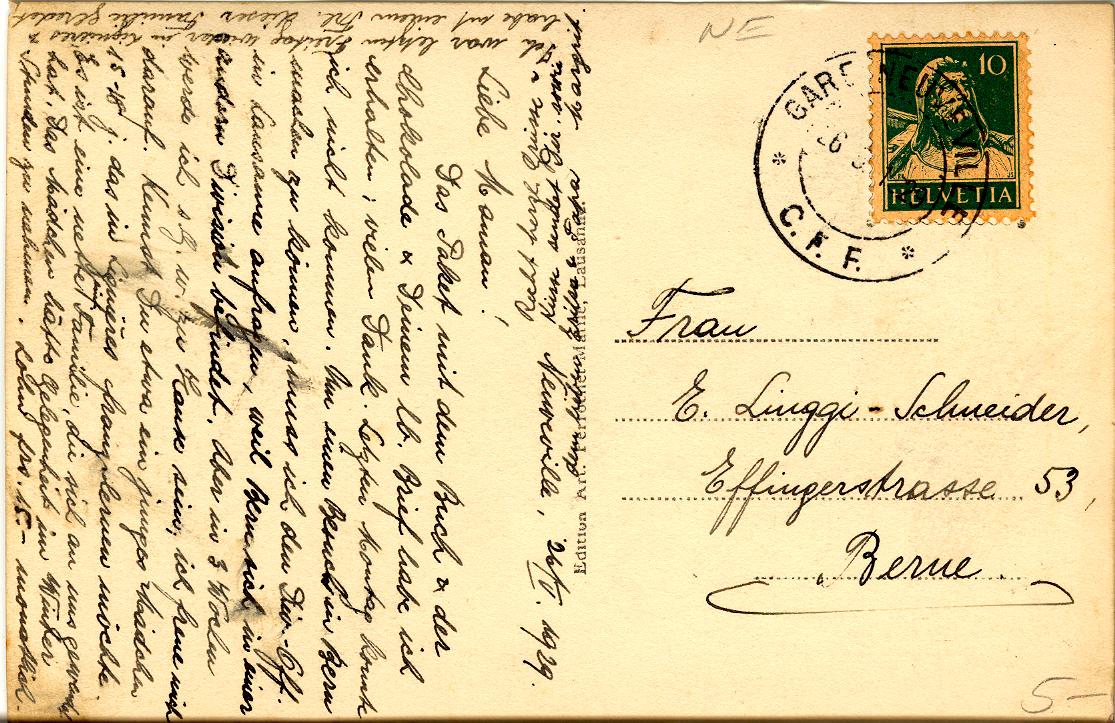 NE
10
HELVETIA
GARE NEUVEVILLE
C. F. F.
Frau
E. Linggi-Schneider,
Effingerstrasse 53,
Berne.
5-
Edition Art. Perrochet-Matile, Lausanne
Neuveville, 26/V. 1929.
Liebe Maman!
Das Paket mit dem Buch & der
Chokolade & Deinem lb. Brief habe ich
erhalten; vielen Dank. Letzten Montag konnte
ich nicht kommen. Um einen Besuch in Bern
machen zu können, muss ich den Div.-Eff.
in Lausanne anfragen, weil Bern sich in einer
andern Division befindet. Aber in 3 Wochen
werde ich s. G. w. zu Hause sein, ich freue mich
darauf. Kennst Du etwa ein junges Mädchen
15-18 J. das in Lignières franz. lernen möchte.
Es ist eine nette Familie, die sich an uns gewandt
hat. Das Mädchen hätte Gelegenheit im Winter
Stunden zu nehmen. Lohn frs. 15.- monatlich.
Ich war letzten Freitag wieder in Lignières &
habe mit einem Frl. dieser Familie geredet.
Nun sendet Dir
Papa & Margrit